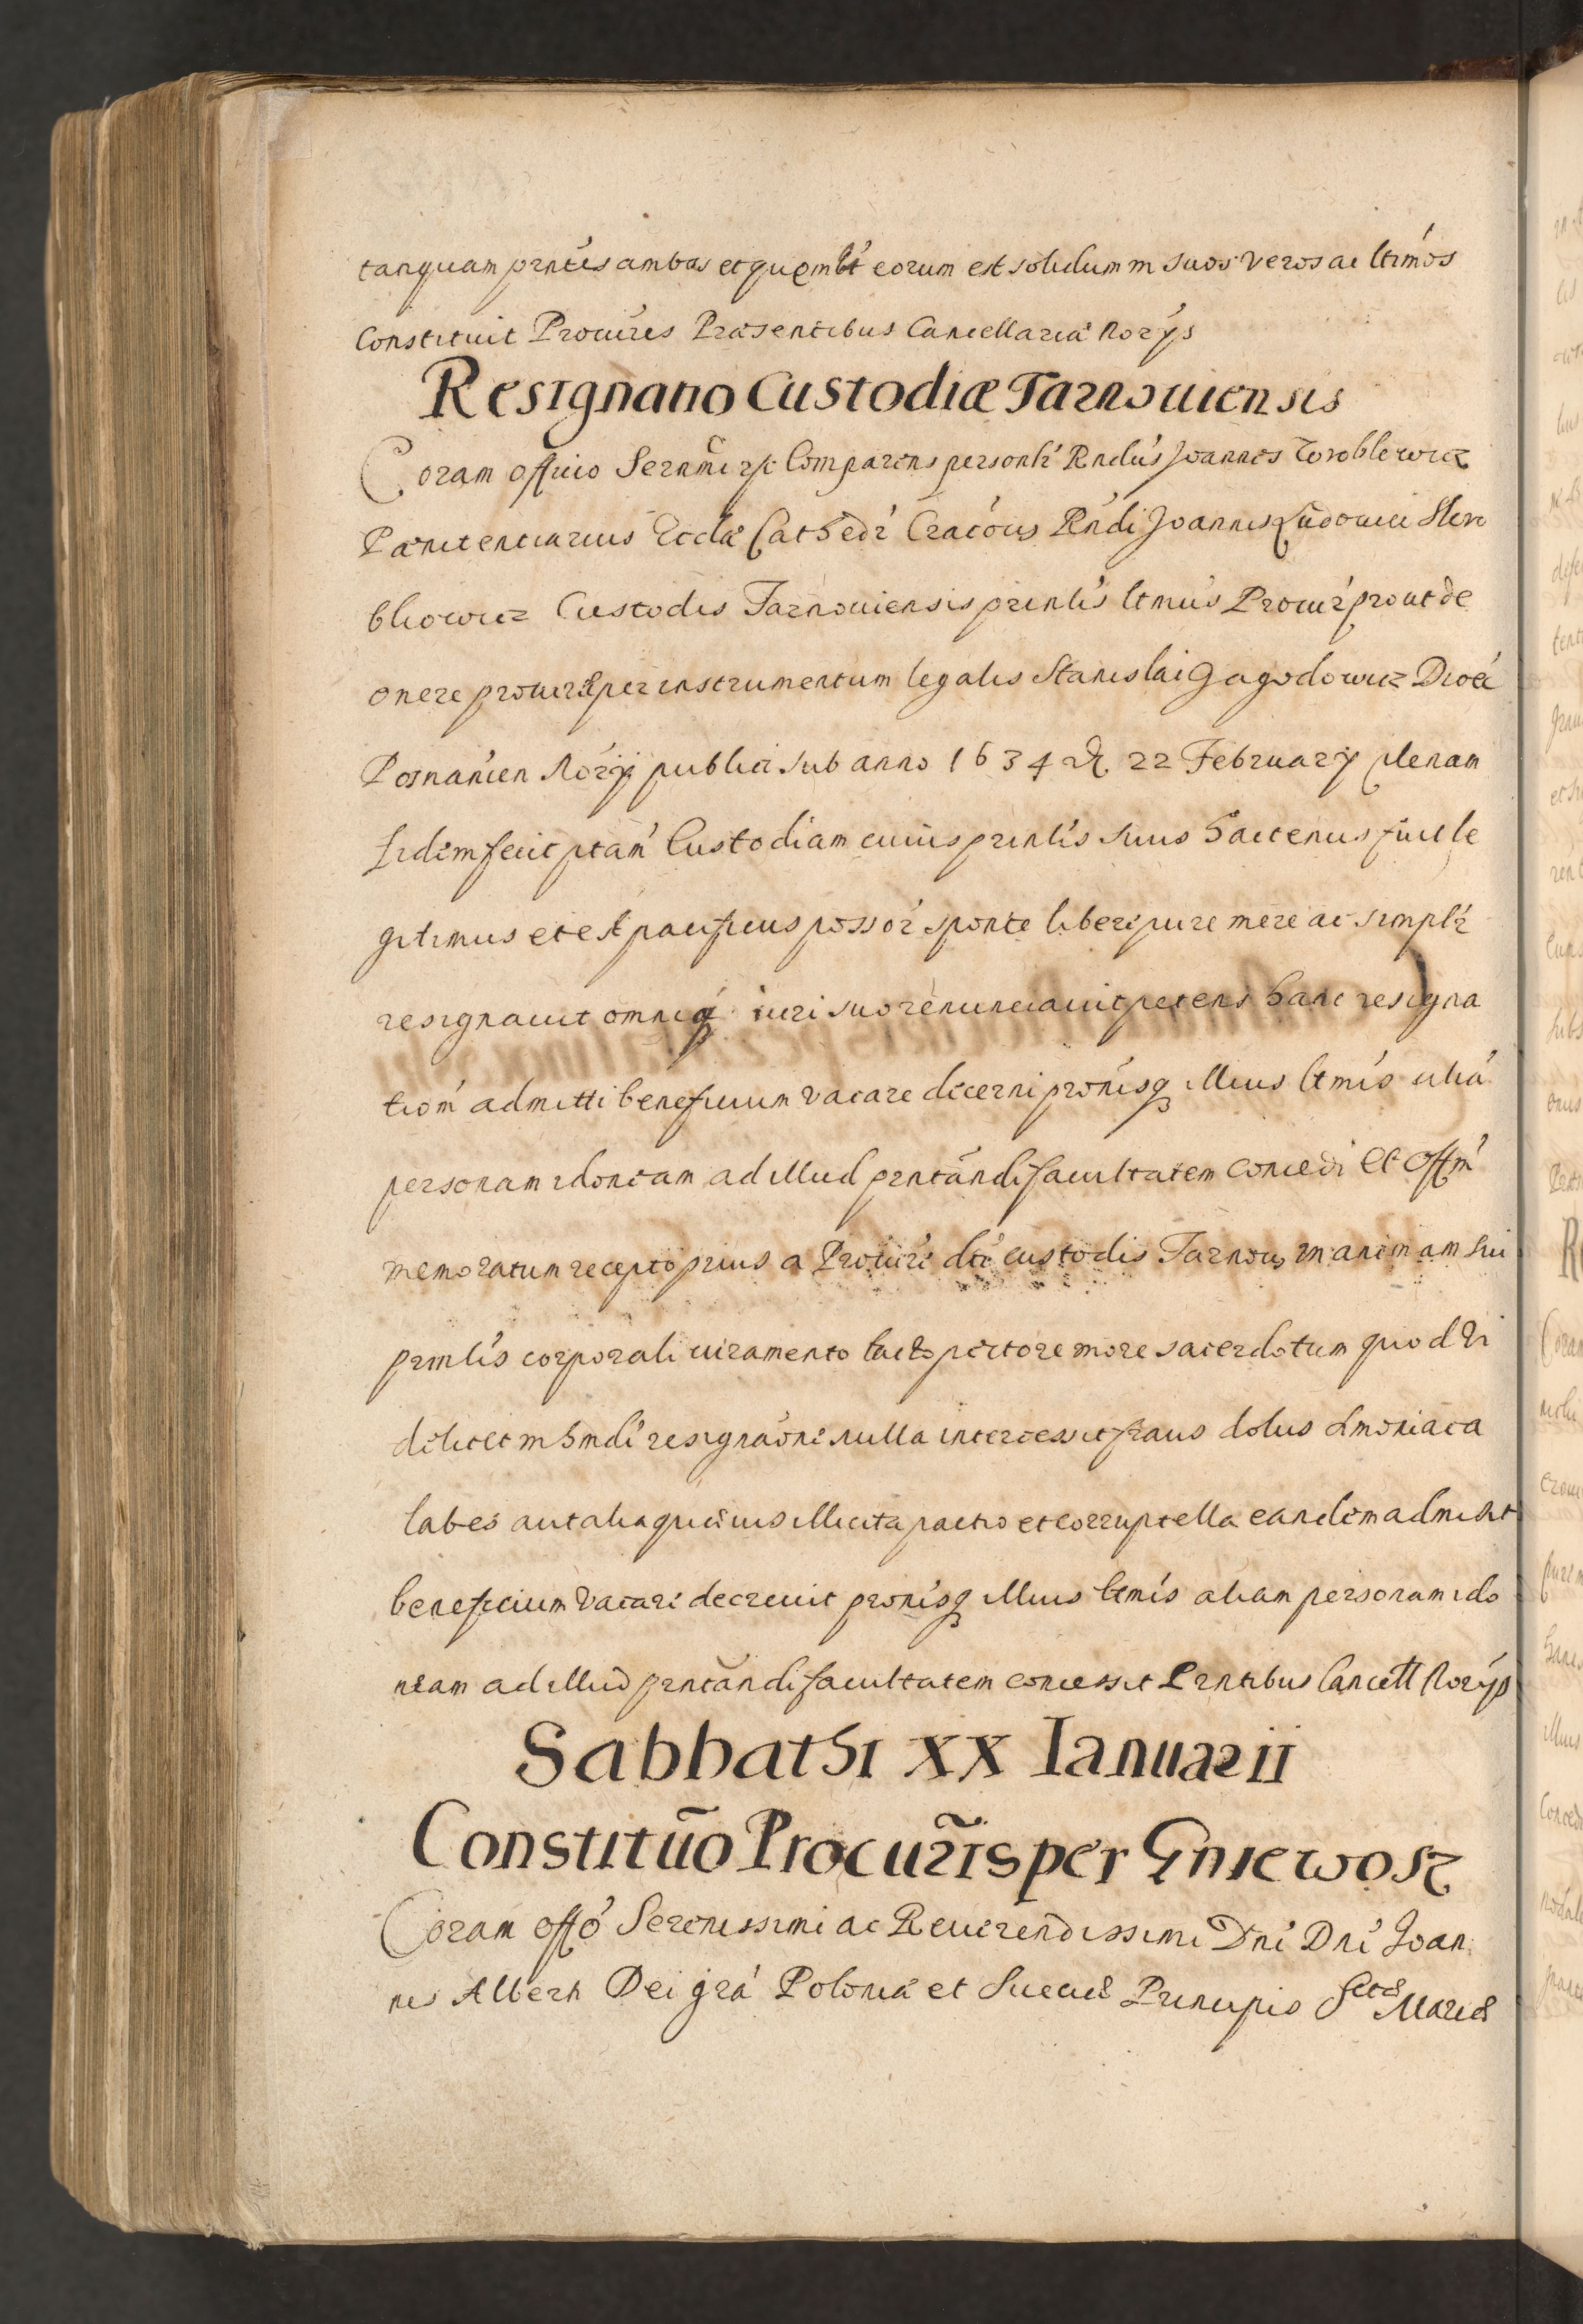 tanquam pntes ambos et quemlt eorum est solidum in suos veros ac ltimos
Constituit Procures Præsentibus Cancellariæ Norÿs
Resignatio Custodiæ Tarnouiensis
Coram officio Sernmi etc Comparens personlr Rndus Joannes Wroblewicz
Pænitentiarius Eccla Cathedr Cracous Rndi Joannis Ludouici Skro
bkowicz Custodis Tarnouiensis prinlis ltmus Procur prout de
onere procure per instrumentum legalis Stanislai Gagodowicz Dioec
Posnanien Norÿ publici sub anno 1634 22 February plenam
fidem fecit ptam Custodiam cuius prinlis suus hactenus fuit le
gitimus et est pacificus possor sponte libere pure mere ac simplr
resignauit omniq iuri suo renunciauit petens hanc resigna
tiom admitti beneficium vacare decerni pronisq illius ltmis alia
personam idoneam ad illud pntandi facultatem concedi Et Offm
memoratum recepto prius a Procure dti custodis Tarnou in animam sui
prinlis corporali iuramento tacto pectore more sacerdotum quod Vi
delicet in hmdi resignaone nulla intercessit fraus dolus simoniaca
labes aut alia quæuis illicita pactio et corruptella eandem admisit
beneficium Vacare decreuit pronisq illius ltmis aliam personam ido
neam ad illud pntandi facultatem concessit Pntibus Cancell Norÿs
Sabbathi XX Ianuarii
Constituo Procuris per Gniewosz
Coram offo Serenissimi ac Reuerendissimi Dni Dni Joan
nis Alberti Dei gra Poloniæ et Sueciæ Principis Sctæ Mariæ